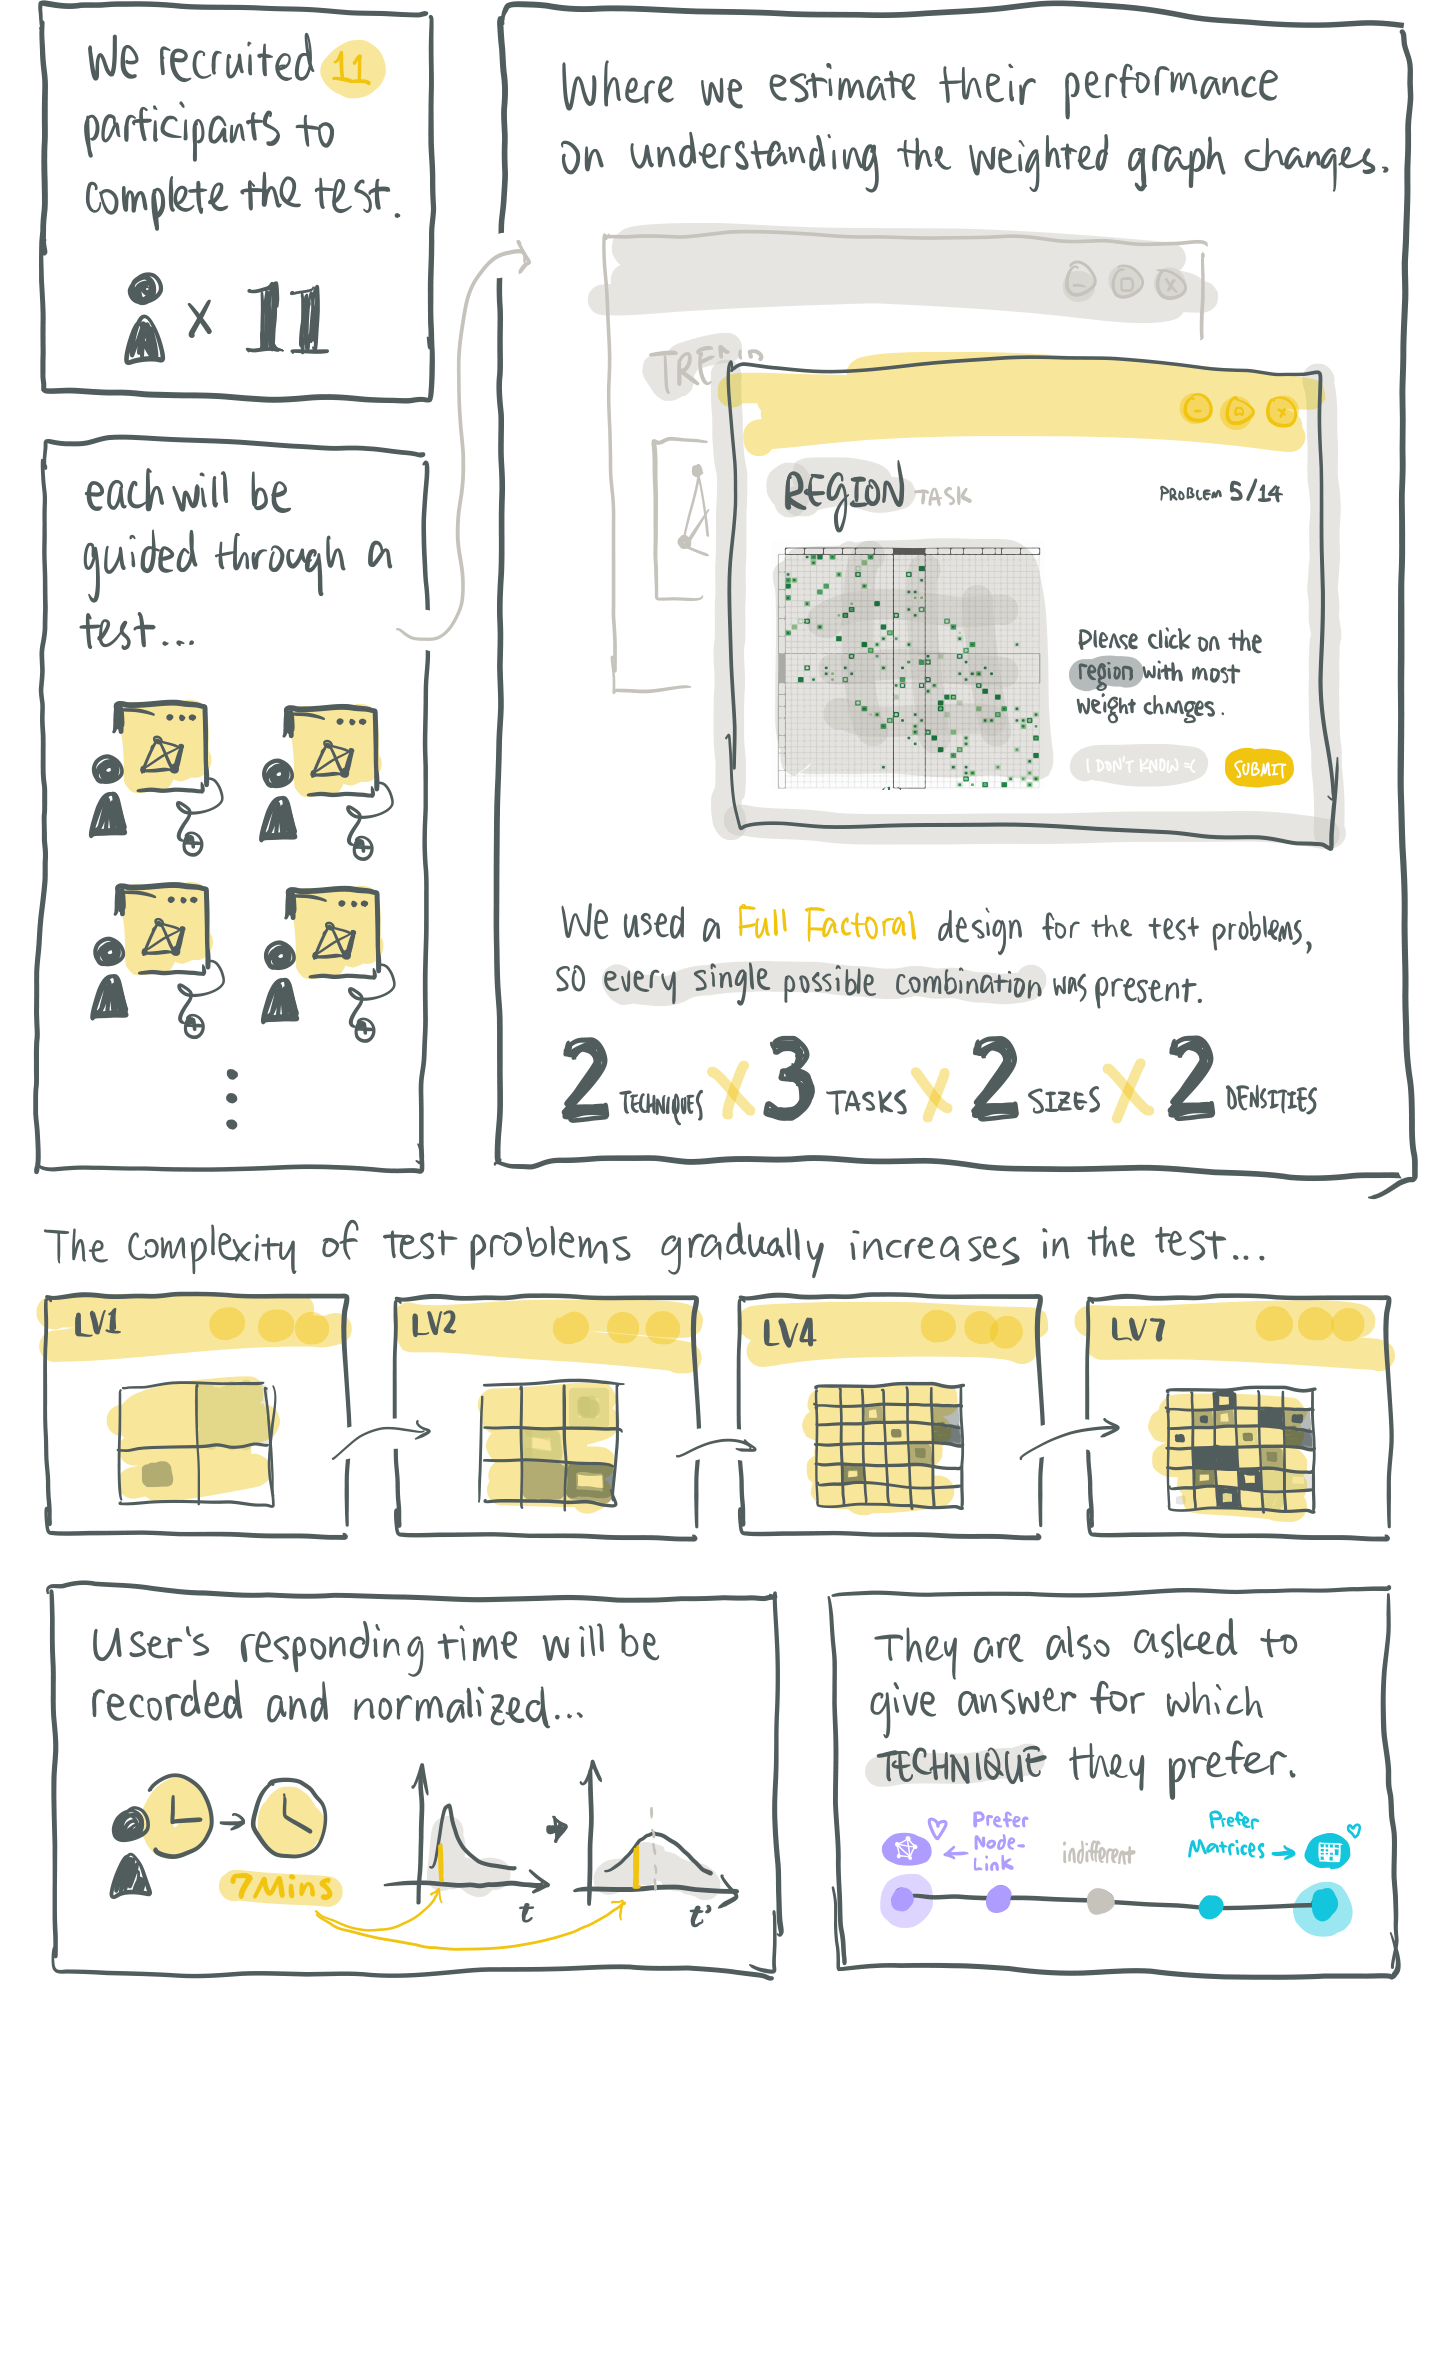 We recruited 11
participants to
complete the test.
x 11
each will be
guided through a
test...
Where we estimate their performance
on understanding the weighted graph changes.
REGION TASK
PROBLEM 5/14
Please click on the
region with most
weight changes.
I DON'T KNOW =(
SUBMIT
We used a Full Factoral design for the test problems,
so every single possible combination was present.
2 TECHNIQUES X 3 TASKS X 2 SIZES X 2 DENSITIES
The complexity of test problems gradually increases in the test...
LV1
LV2
LV4
LV7
User's responding time will be
recorded and normalized...
7 Mins
t
t'
They are also asked to
give answer for which
TECHNIQUE they prefer.
Prefer
Node-
Link
indifferent
Prefer
Matrices